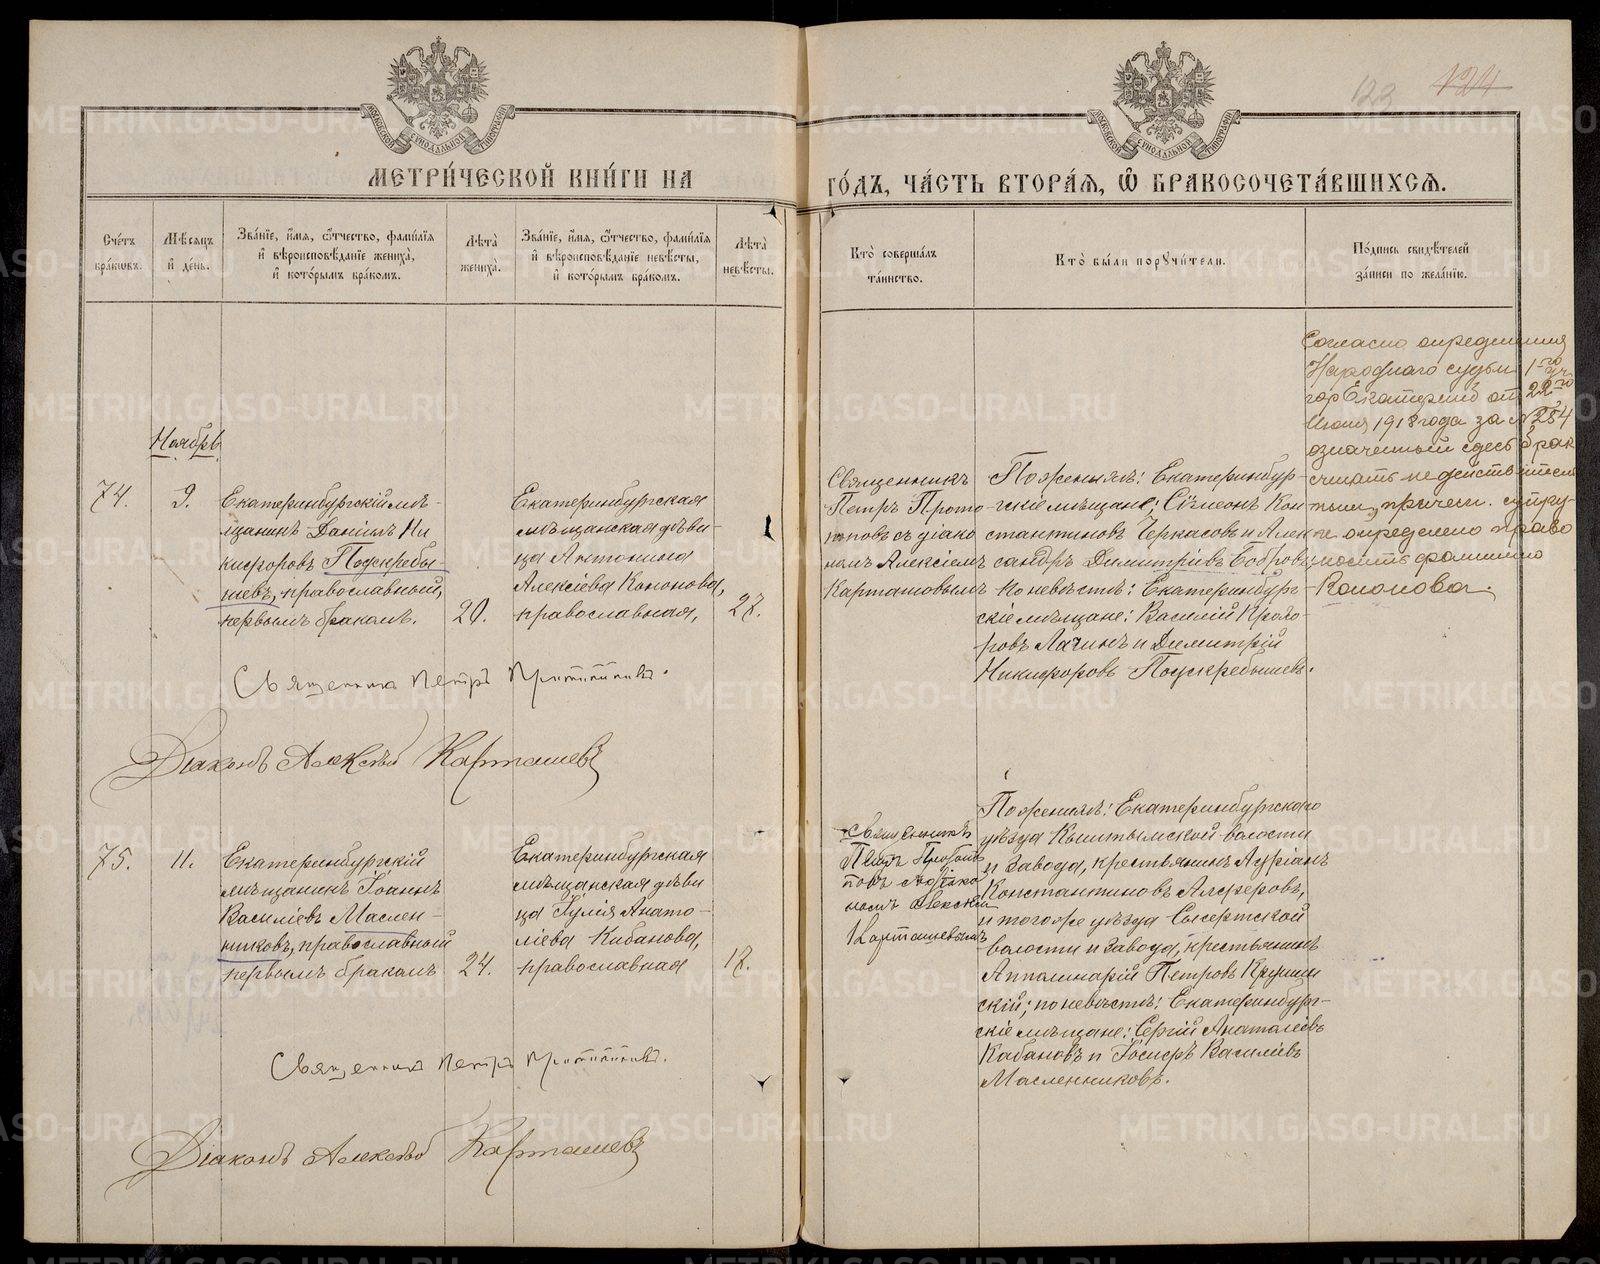 123 124
МЕТРИ́ЧЕСКОЙ КНИ́ГИ НА ГО́ДЪ, ЧА́СТЬ ВТОРА́Я, Ѡ БРАКОСОЧЕТА́ВШИХСЯ.
Сче́тъ
бра́кѡвъ.
Мѣ́сяцъ
и҆ де́нь.
Зва́нїе, и҆́мя, ѻ҆́тчество, фами́лїя
и҆ вѣроисповѣ́данїе жениха̀,
и҆ кото́рымъ бра́комъ.
Лѣ́та
жениха̀.
Зва́нїе, и҆́мя, ѻ҆́тчество, фами́лїя
и҆ вѣроисповѣ́данїе невѣ́сты,
и҆ кото́рымъ бра́комъ.
Лѣ́та
невѣ́сты.
Кто̀ соверша́лъ
та́инство.
Кто̀ бы́ли поручи́тели.
По́дпись свидѣ́телей
за́писи по жела́нїю.
Ноябрь
74.
9.
Екатеринбургскій мѣ-
щанинъ Даніилъ Ни
кифоровъ Поскребы-
шевъ, православный,
первымъ бракомъ.
20.
Екатеринбургская
мѣщанская дѣви-
ца Антонина
Алексіева Кононова,
православная,
27.
Священникъ
Петръ Прото
поповъ съ діако
номъ Алексіемъ
Карташовымъ
По женихѣ: Екатеринбур-
гскіе мѣщане; Сѵмеонъ Кон-
стантиновъ Черкасовъ и Алек
сандръ Димитріевъ Бобровъ;
по невѣстѣ: Екатеринбург-
скіе мѣщане: Василій
ровъ Лачинъ и Димитрій
Никифоровъ Поскребышевъ.
Согласно определения
Народнаго судьи 1-го уч.
гор Екатеринб от 22го
Июня 1918 года за № 284
означенный здесь брак
считать недействитель
ным, причем супру-
ге определено право
носить фамилию
Кононова.
Священникъ Петръ Протопоповъ.
Діаконъ Алексѣй Карташевъ
75.
11.
Екатеринбургскій
мѣщанинъ Іоаннъ
Василіевъ Маслен-
никовъ, православный
первымъ бракомъ
24.
Екатеринбургская
мѣщанская дѣви
ца Іулія Анато-
ліева Кабанова,
православная
18.
Священникъ
Петръ Протопо
повъ съ діако
номъ Алексѣй
Карташевымъ
По женихѣ: Екатеринбургскаго
уѣзда Кыштымской волости
и завода, крестьянинъ Адріанъ
Константиновъ Алферовъ,
и того же уѣзда Сысертской
волости и завода, крестьянинъ
Апполинарій Петровъ
скій; по невѣстѣ: Екатеринбург-
скіе мѣщане: Сергій Анатоліевъ
Кабановъ и Іосифъ Василіевъ
Масленниковъ.
Священникъ Петръ Протопоповъ.
Діаконъ Алексѣй Карташевъ